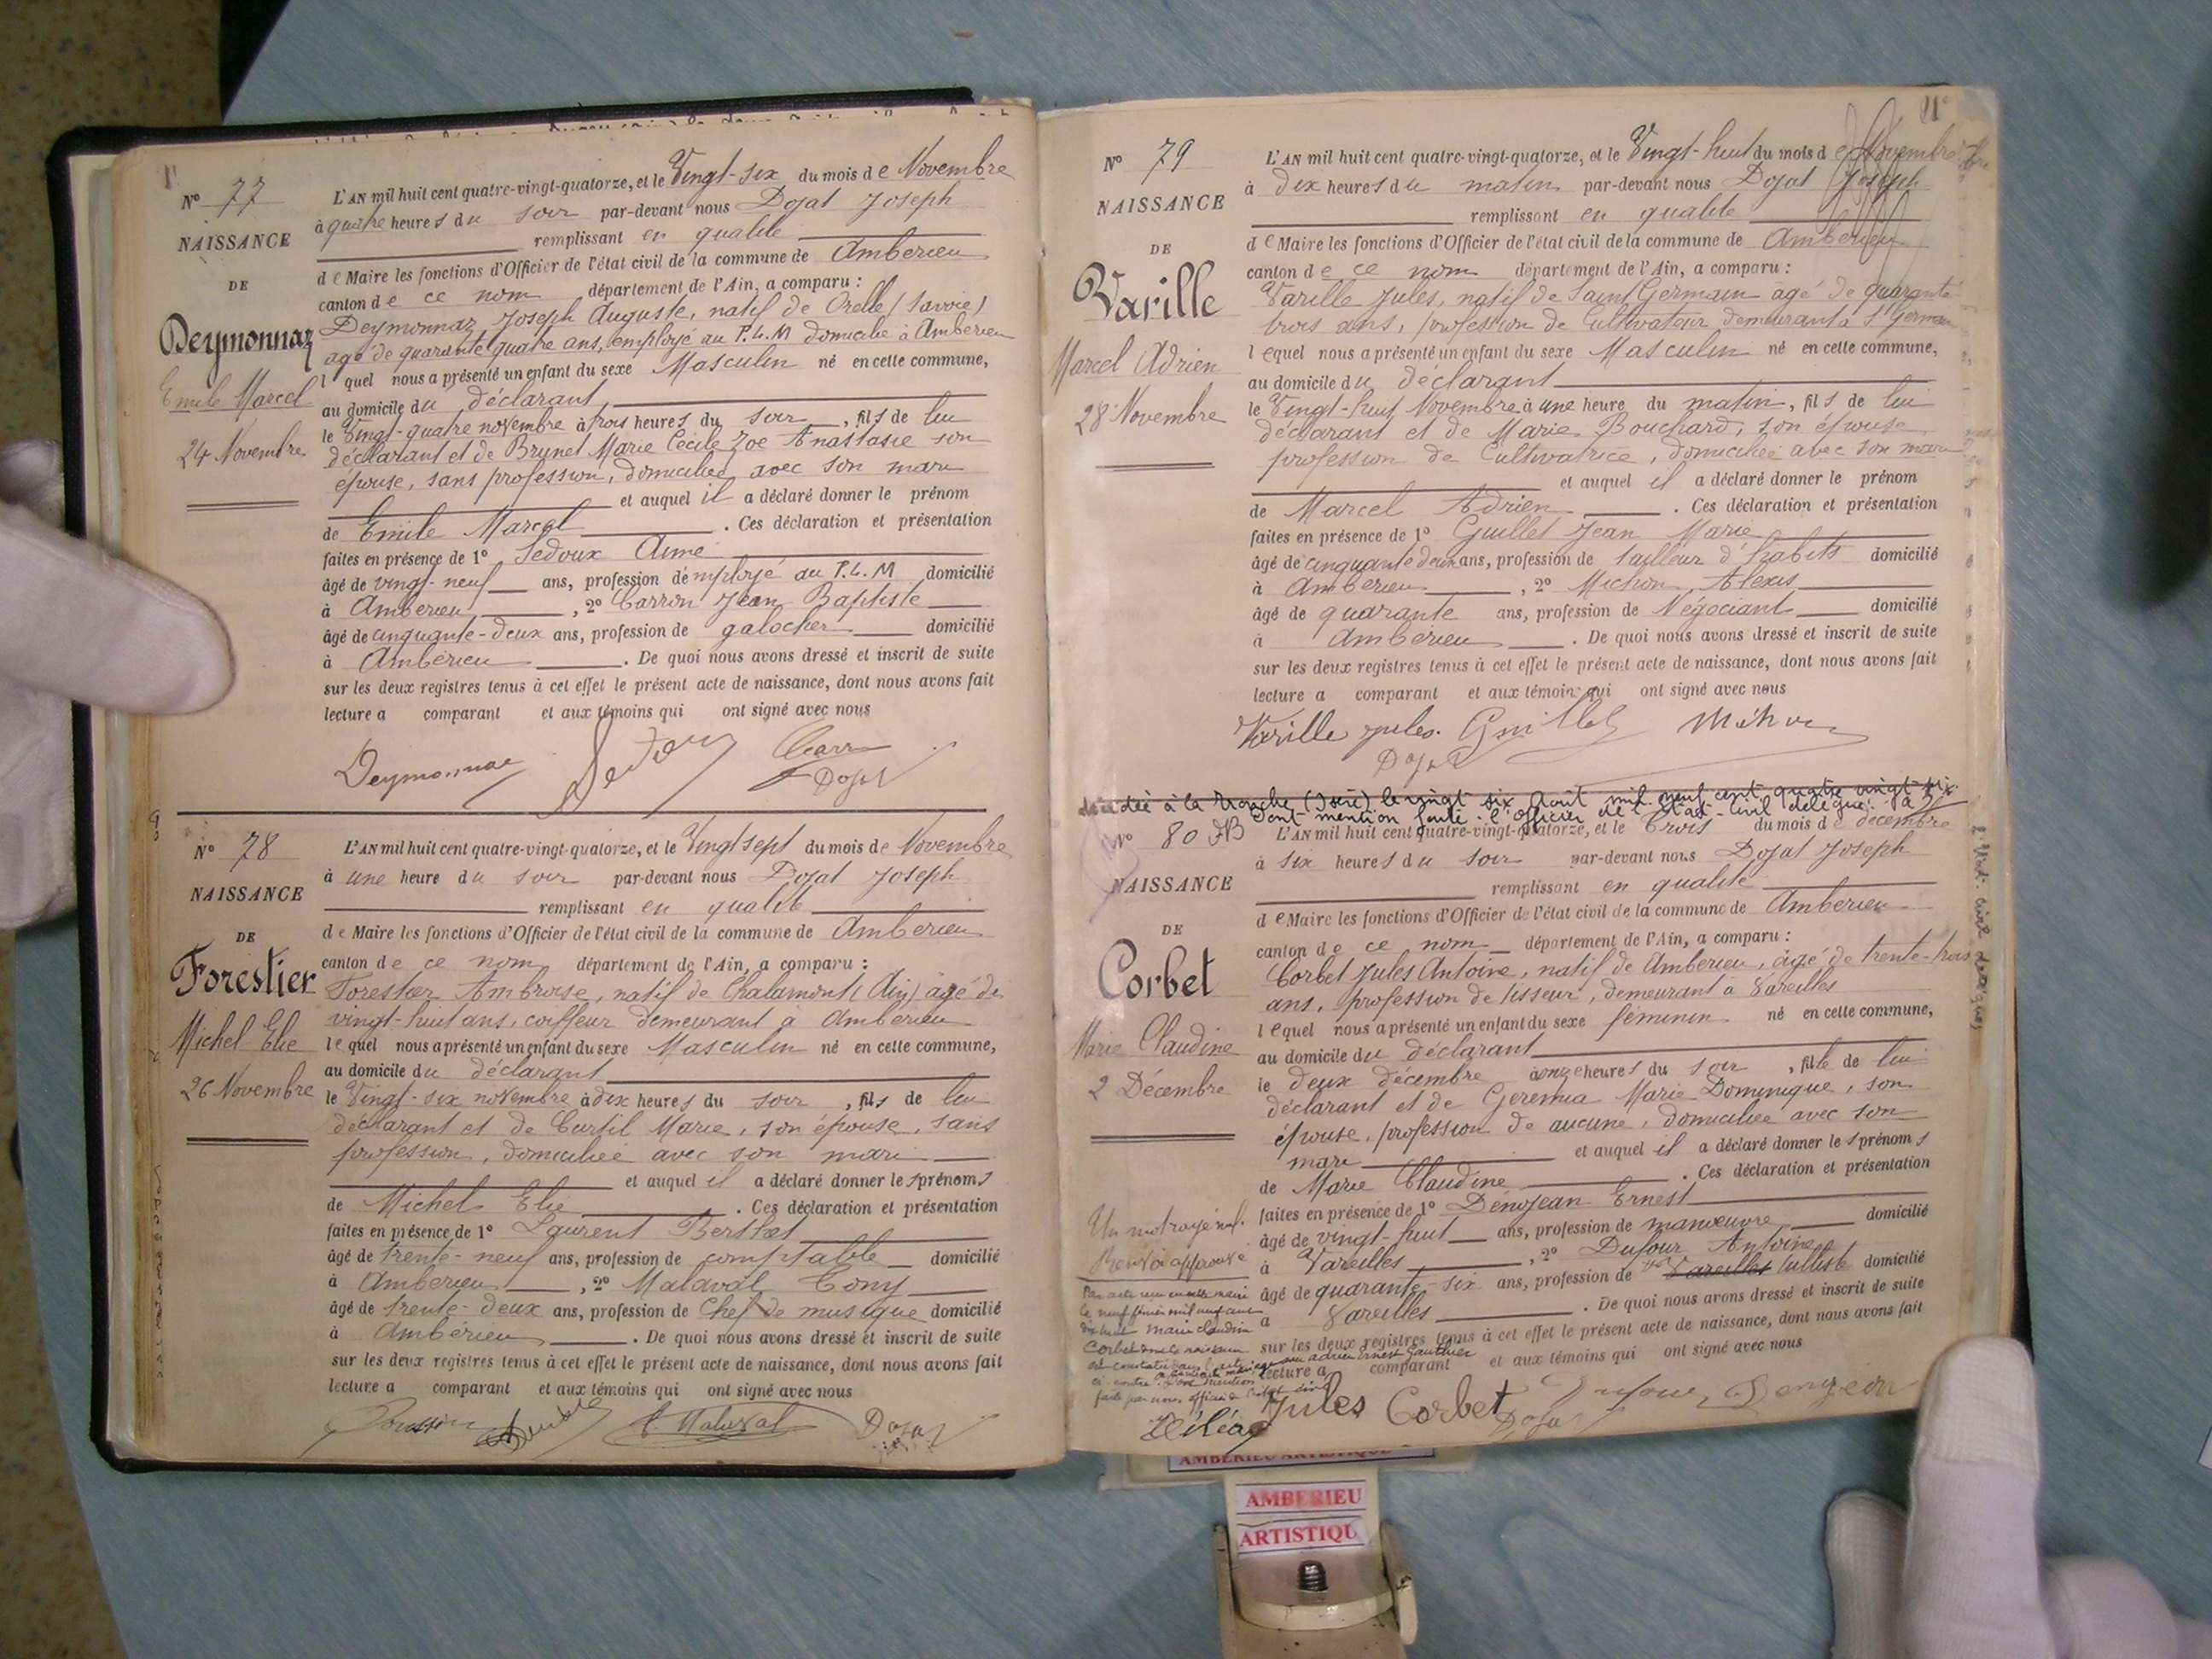 N° 77
NAISSANCE
DE
Deymonnaz
Emile Marcel
24 Novembre
L'AN mil huit cent quatre-vingt-quatorze, et le Vingt-six du mois de Novembre
à quatre heures du soir par-devant nous Dojat Joseph
remplissant en qualité
de Maire les fonctions d'Officier de l'état civil de la commune de Ambérieu
canton de ce nom département de l'Ain, a comparu :
Deymonnaz Joseph Auguste, natif de Orelle (Savoie)
agé de quarante quatre ans, employé au P.L.M domicilié à Ambérieu
l quel nous a présenté un enfant du sexe Masculin né en cette commune,
au domicile du déclarant
le Vingt-quatre novembre à trois heures du soir, fils de lui
déclarant et de Brunet Marie Cécile Zoé Anastasie son
épouse, sans profession, domiciliée avec son mari
et auquel il a déclaré donner le prénom
de Emile Marcel. Ces déclaration et présentation
faites en présence de 1° Ledoux Aimé
âgé de vingt-neuf ans, profession d'employé au P.L.M domicilié
à Ambérieu, 2° Carron Jean Baptiste
âgé de cinquante-deux ans, profession de galocher domicilié
à Ambérieu. De quoi nous avons dressé et inscrit de suite
sur les deux registres tenus à cet effet le présent acte de naissance, dont nous avons fait
lecture a comparant et aux témoins qui ont signé avec nous
Deymonnaz Ledoux Carron
Dojat
N° 78
NAISSANCE
DE
Forestier
Michel Elie
26 Novembre
L'AN mil huit cent quatre-vingt-quatorze, et le Vingt sept du mois de Novembre
à une heure du soir par-devant nous Dojat Joseph
remplissant en qualité
de Maire les fonctions d'Officier de l'état civil de la commune de Ambérieu
canton de ce nom département de l'Ain, a comparu :
Forestier Ambroise, natif de Chalamont (Ain) âgé de
vingt-huit ans, coiffeur demeurant à Ambérieu
lequel nous a présenté un enfant du sexe Masculin né en cette commune,
au domicile du déclarant
le Vingt-six novembre à dix heures du soir, fils de lui
déclarant et de Curtil Marie, son épouse, sans
profession, domiciliée avec son mari
et auquel il a déclaré donner les prénoms
de Michel Elie. Ces déclaration et présentation
faites en présence de 1° Laurent Berthet
âgé de trente-neuf ans, profession de comptable domicilié
à Ambérieu, 2° Malaval Tony
âgé de trente-deux ans, profession de Chef de musique domicilié
à Ambérieu. De quoi nous avons dressé et inscrit de suite
sur les deux registres tenus à cet effet le présent acte de naissance, dont nous avons fait
lecture a comparant et aux témoins qui ont signé avec nous
Malaval Dojat
N° 79
NAISSANCE
DE
Varille
Marcel Adrien
28 Novembre
L'AN mil huit cent quatre-vingt-quatorze, et le Vingt-huit du mois de Novembre
à dix heures du matin par-devant nous Dojat Joseph
remplissant en qualité
de Maire les fonctions d'Officier de l'état civil de la commune de Ambérieu
canton de ce nom département de l'Ain, a comparu :
Varille Jules, natif de Saint Germain âgé de quarante
trois ans, profession de Cultivateur demeurant à St Germain
lequel nous a présenté un enfant du sexe Masculin né en cette commune,
au domicile du déclarant
le Vingt-huit Novembre à une heure du matin, fils de lui
déclarant et de Marie Bouchard, son épouse
profession de Cultivatrice, domiciliée avec son mari
et auquel il a déclaré donner le prénom
de Marcel Adrien. Ces déclaration et présentation
faites en présence de 1° Guillet Jean Marie
âgé de cinquante deux ans, profession de tailleur d'habits domicilié
à Ambérieu, 2° Michon Alexis
âgé de quarante ans, profession de Négociant domicilié
à Ambérieu. De quoi nous avons dressé et inscrit de suite
sur les deux registres tenus à cet effet le présent acte de naissance, dont nous avons fait
lecture a comparant et aux témoins qui ont signé avec nous
Varille Jules. Guillet Michon
Dojat
décédée à la Tronche (Isère) le vingt six Août mil neuf cent quatre vingt six.
Dont mention faite. l'officier de l'Etat-Civil délégué.
N° 80
NAISSANCE
DE
Corbet
Marie Claudine
2 Décembre
L'AN mil huit cent quatre-vingt-quatorze, et le trois du mois de décembre
à six heures du soir par-devant nous Dojat Joseph
remplissant en qualité
de Maire les fonctions d'Officier de l'état civil de la commune de Ambérieu
canton de ce nom département de l'Ain, a comparu :
Corbet Jules Antoine, natif de Ambérieu, âgé de trente-trois
ans, profession de tisseur, demeurant à Vareilles
lequel nous a présenté un enfant du sexe féminin né en cette commune,
au domicile du déclarant
le deux décembre à onze heures du soir, fille de lui
déclarant et de Geremia Marie Dominique, son
épouse, profession de aucune, domiciliée avec son
mari et auquel il a déclaré donner les prénoms
de Marie Claudine. Ces déclaration et présentation
faites en présence de 1° Dénojean Ernest
âgé de vingt-huit ans, profession de manœuvre domicilié
à Vareilles, 2° Dufour Antoine
âgé de quarante-six ans, profession de Vareilles tulliste domicilié
à Vareilles. De quoi nous avons dressé et inscrit de suite
sur les deux registres tenus à cet effet le présent acte de naissance, dont nous avons fait
lecture a comparant et aux témoins qui ont signé avec nous
Un mot rayé nul.
Renvoi approuvé
le neuf février mil neuf cent
dix huit Marie Claudine
Corbet dont la naissance
est constatée dans l'acte
ci-contre
Adrien Ernest Gauthier
Jules Corbet Dojat Dufour
AMBERIEU ARTISTIQUE
AMBERIEU
ARTISTIQU